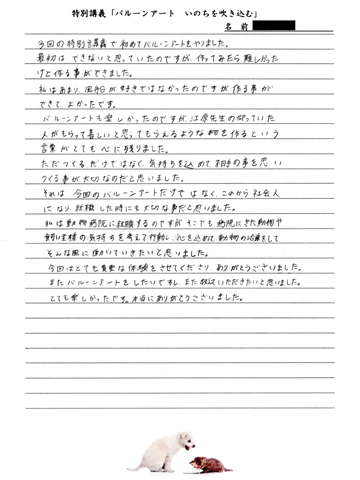 特別講義「バルーンアート　いのちを吹き込む」
名 前
今回の特別講義で初めてバルーンアートをやりました。
最初は できないと思っていたのですが、作ってみたら難しかった
けど作る事ができました。
私はあまり 風船が好きではなかったのですが作る事が
できて よかったです。
バルーンアートも楽しかったのですが、江原先生の仰っていた
人がもらって喜しいと思ってもらえるような物を作るという
言葉がとても心に残りました。
ただつくるだけではなく、気持ちを込めて、相手の事を思い
つくる事が大切なのだと思いました。
それは、今回のバルーンアートだけではなく、これから社会人
になり就職した時にも大切な事だと思いました。
私は動物病院に就職するのですが そこでも病院にきた動物や
飼い主様の気持ちを考えて行動し、心を込めて動物の治療をして
そんな風に働いていきたいと思いました。
今回はとても貴重な体験をさせてくださり ありがとうございました。
またバルーンアートをしたいですし、また教えていただきたいと思いました。
とても楽しかったです。本当にありがとうございました。